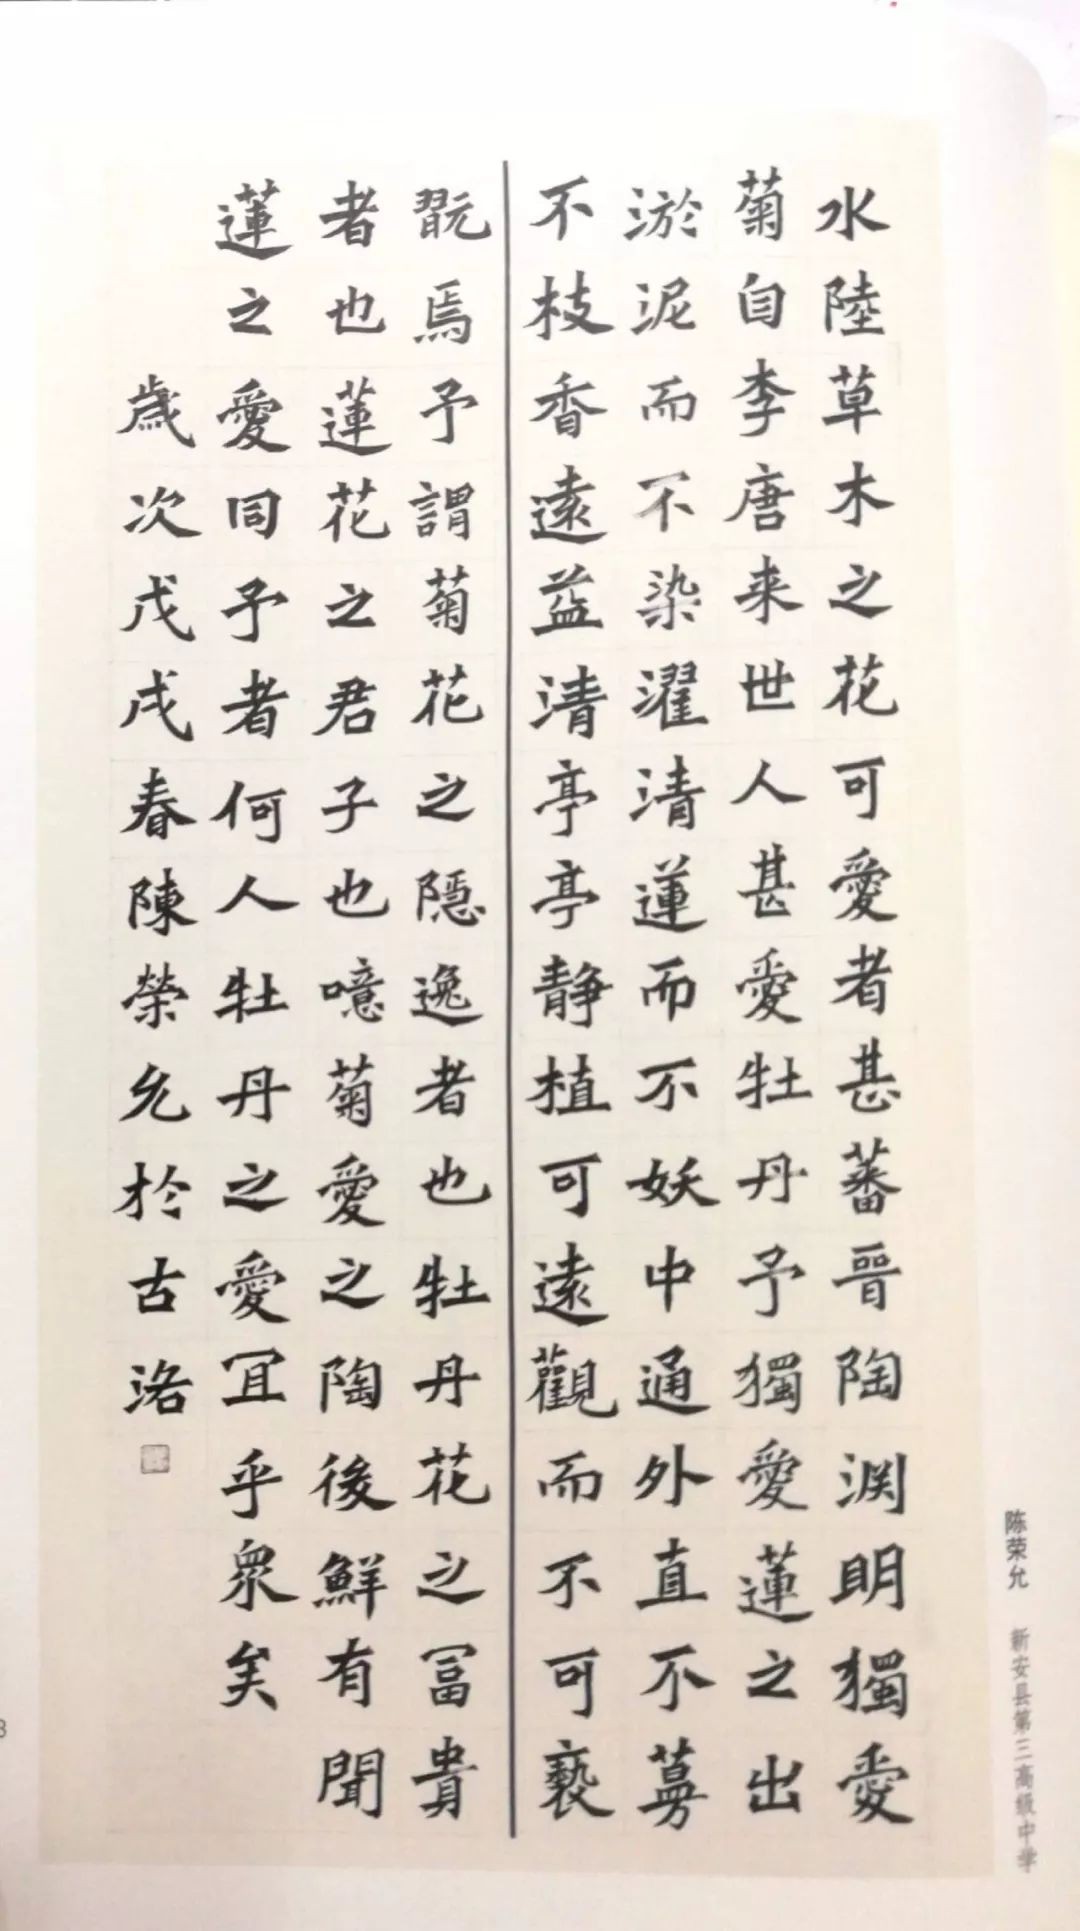 水陸草木之花可愛者甚蕃晉陶渊明獨愛
菊自李唐来世人甚愛牡丹予獨愛蓮之出
淤泥而不染濯清蓮而不妖中通外直不蔓
不枝香遠益清亭亭静植可遠觀而不可褻
翫焉予謂菊花之隱逸者也牡丹花之冨貴
者也蓮花之君子也噫菊愛之陶後鮮有聞
蓮之愛同予者何人牡丹之愛冝乎衆矣
歲次戊戌春陳榮允於古洛
陈荣允 新安县第三高级中学